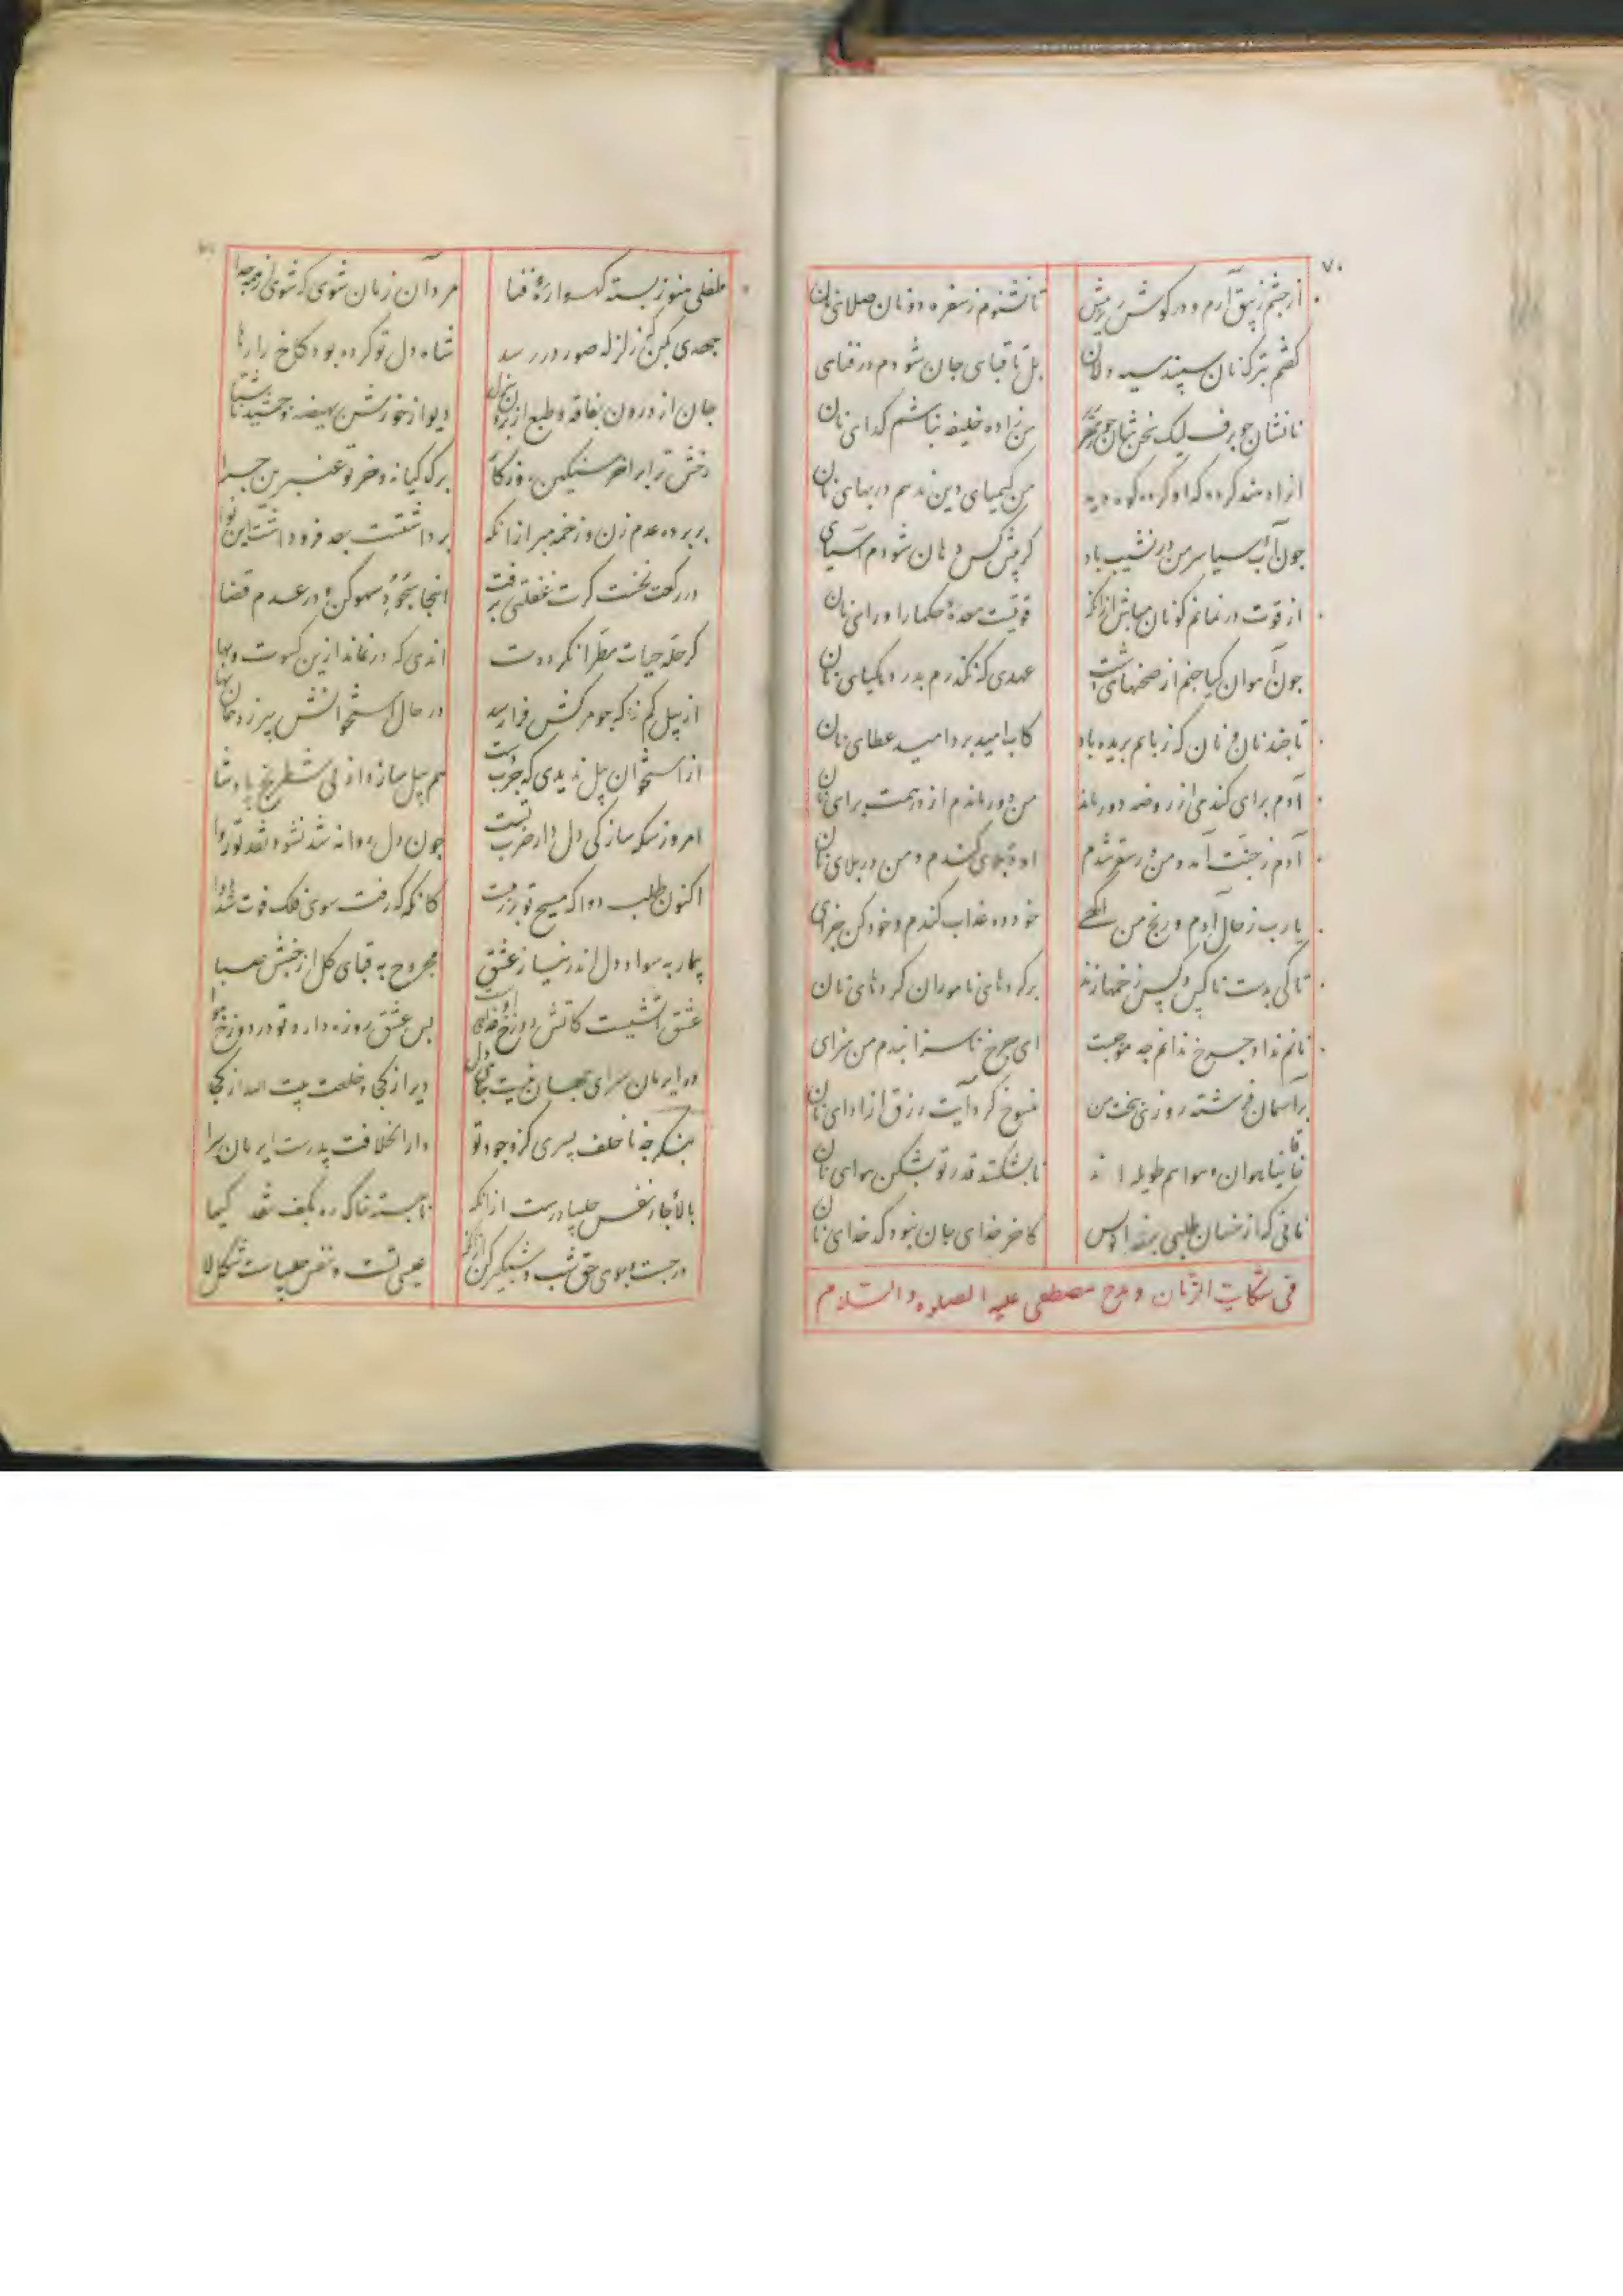 ۷۰
از چشم زیبق آرم و در گوش ریزمش تا نشنوم ز سفره دونان صلای نان
گفتم بترک نان سپید سیه دلان بل تا قبای جان شودم در قنای
نانشان چو برف لیک سخنشان چو زمهریر من زاده خلیفه نباشم گدای نان
من کیمیای دین ندهم در بهای نان
چون آب آسیا سر من در نشیب باد گر پیش کس دهان شودم آسیای
از قوت در نمانم گو نان مباش از آنکه قوتیست معده حکما را ورای نان
چون آهوان گیا چرم از صحنهای دشت عهدی که نگذرم بدر ده کیای نان
تا چند نان و نان که زبانم بریده باد کاب امید برد امید عطای نان
آدم برای گندمی از روضه دور ماند من دور ماندم از در همت برای نان
آدم ز جنت آمد و من در سقر شدم او در بلای گندم و من در بلای نان
یا رب ز حال آدم و رنج من آگهی خود ده عذاب گندم و خود کن جزای
تا کی بدست ناکس و کس زخمها زند بر گردهای ناموران گردهای نان
نانم نداد چرخ ندانم چه موجبست ای چرخ ناسزا نبدم من سزای
بر آسمان فرشته روزی بخت من منسوخ کرد آیت رزق از ادای نان
خاقانیا هوان و هوا هم طویله اند تا نشکند قدر تو بشکن هوای نان
نانی که از خسان طلبی بهر او مپرس کاخر خدای جان نبود کدخدای نان
فی شکایت الزمان و مدح مصطفی علیه الصلوه و السلام
طفلی هنوز بسته گهواره فنا مرد آن زمان شوی که شوی از همه جدا
جهدی بکن که زلزله صور در رسد شاه دل تو کرده بود کاخ را رها
جان از درون بفاقه و طبع از برون ببرگ دیو از خورش بهیضه و جمشید ناشتا
رخش ترا بر آخر سنگین روزگار برگ گیا نه و خر تو عنبرین چرا
بر پرده عدم زن و زخمه مبر از آنکه برداشتست بعد فروداشت این نوا
در رکعت نخست گرت غفلتی برفت اینجا سجود سهو کن و در عدم قضا
گر حله حیات مطرا نگرددت اندی که درنماند ازین کسوت و بها
از پیل کم نه که چو مرگش فرا رسد در حال استخوانش بیرزد بدان بها
از استخوان پیل ندیدی که چرب دست هم پیل سازد از پی شطرنج پادشا
امروز سکه ساز که دل دار ضرب تست چون دل روانه شد نشود نقد تو روا
اکنون طلب دوا که مسیح تو بر زمیست کانگه که رفت سوی فلک فوت شد دوا
بیمار به سواد دل اندر نیاز عشق مجروح به قبای گل از جنبش صبا
عشق آتشیست کاتش دوزخ غذای اوست پس عشق روزه دار و تو در دوزخ هوا
در ایرمان سرای جهان نیست جای دل دیر از کجا و خلعت بیت الله از کجا
بنگر چه ناخلف پسری کز وجود تو دار الخلافت پدرست ایرمان سرا
بالا برآر نفس چلیپا پرست از آنکه
عیسی تست و نفس چلیپاست شکل لا